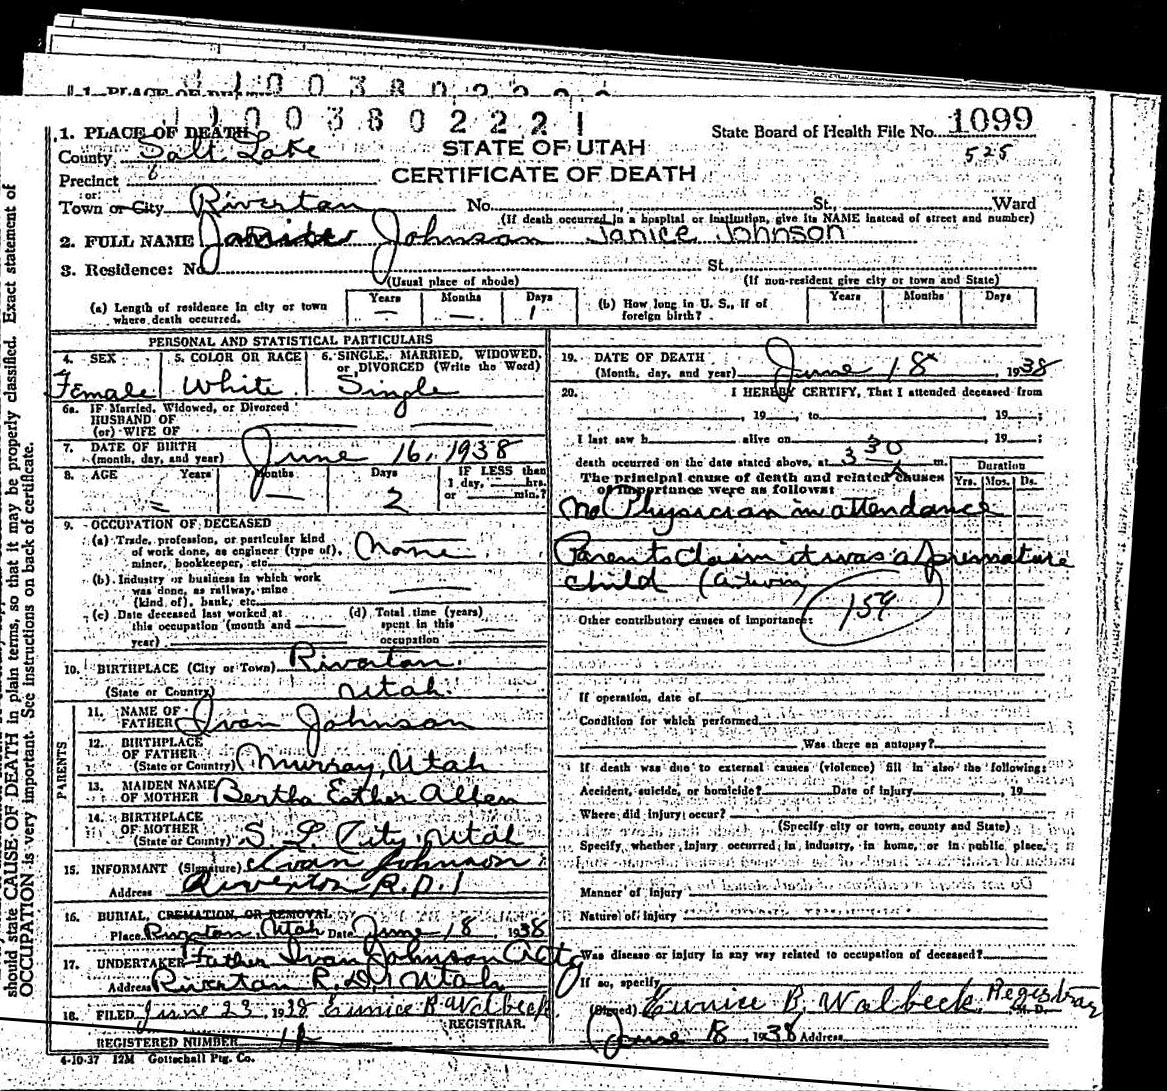 1. PLACE OF DEATH
1 1 0 0 3 8 0 2 2 2 1
State Board of Health File No. 1099
County Salt Lake
STATE OF UTAH
525
Precinct 6
CERTIFICATE OF DEATH
or
Town or City Riverton No. St., Ward
(If death occurred in a hospital or institution, give its NAME instead of street and number)
2. FULL NAME Johnson Janice Johnson
3. Residence: No. St.,
(Usual place of abode) (If non-resident give city or town and State)
(a) Length of residence in city or town where death occurred. Years — Months — Days 1
(b) How long in U. S., if of foreign birth? Years Months Days
PERSONAL AND STATISTICAL PARTICULARS
4. SEX Female
5. COLOR OR RACE White
6. SINGLE, MARRIED, WIDOWED, or DIVORCED (Write the Word) Single
6a. IF Married, Widowed, or Divorced
HUSBAND OF
(or) WIFE OF
7. DATE OF BIRTH
(month, day, and year) June 16, 1938
8. AGE Years — Months — Days 2 IF LESS than 1 day, hrs. or min.?
9. OCCUPATION OF DECEASED
(a) Trade, profession, or particular kind
of work done, as engineer (type of), None
miner, bookkeeper, etc.
(b) Industry or business in which work
was done, as railway, mine
(kind of), bank, etc.
(c) Date deceased last worked at
this occupation (month and
year)
(d) Total time (years)
spent in this
occupation
10. BIRTHPLACE (City or Town) Riverton
(State or Country) Utah
PARENTS
11. NAME OF
FATHER Ivan Johnson
12. BIRTHPLACE
OF FATHER
(State or County) Murray, Utah
13. MAIDEN NAME
OF MOTHER Bertha Esther Allen
14. BIRTHPLACE
OF MOTHER
(State or County) S L City, Utah
15. INFORMANT (Signature) Ivan Johnson
Address Riverton R.D. 1
16. BURIAL, CREMATION, OR REMOVAL
Place Riverton, Utah Date June 18, 1938
17. UNDERTAKER Father Ivan Johnson
Address Riverton R.D. 1 Utah
18. FILED June 23, 1938 Eunice B. Walbeck
REGISTRAR.
REGISTERED NUMBER
4-10-37 12M Gottschall Ptg. Co.
19. DATE OF DEATH
(Month, day, and year) June 18 1938
20. I HEREBY CERTIFY, That I attended deceased from
19 , to 19 ;
I last saw h alive on 19 ;
death occurred on the date stated above, at 3 30 m.
The principal cause of death and related causes
of importance were as follows:
Duration
Yrs. Mos. Ds.
No Physician in attendance
Parents claim it was a premature
child (a twin)
159
Other contributory causes of importance:
If operation, date of
Condition for which performed
Was there an autopsy?
If death was due to external causes (violence) fill in also the following:
Accident, suicide, or homicide? Date of injury , 19
Where did injury occur?
(Specify city or town, county and State)
Specify whether injury occurred in industry, in home, or in public place.
Manner of injury
Nature of injury
Was disease or injury in any way related to occupation of deceased?
If so, specify
(Signed) Eunice B. Walbeck Registrar M. D.
June 18 1938 Address
should state CAUSE OF DEATH in plain terms, so that it may be properly classified. Exact statement of
OCCUPATION is very important. See instructions on back of certificate.